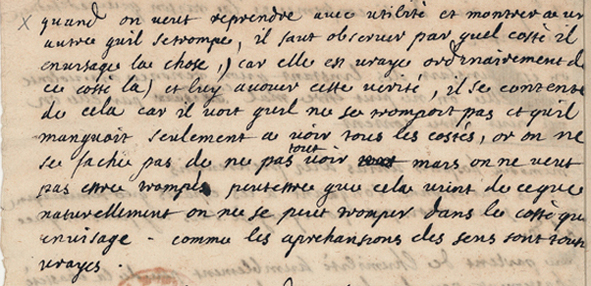 x quand on veut reprendre avec utilité et montrer a un
autre quil setrompe, il faut observer par quel costé il
envisage la chose,) car elle est vraye ordinairement de
ce costé la) et luy avouer cette verité, il se contente
de cela car il voit quil ne se trompoit pas et quil
manquoit seulement a voir tous les costés, or on ne
se fache pas de ne pas tout voir mais on ne veut
pas estre trompé peutettre que cela vient de ceque
naturellement on ne se peut tromper dans le costé qu
envisage. comme les aprehensions des sens sont tous
vrayes.